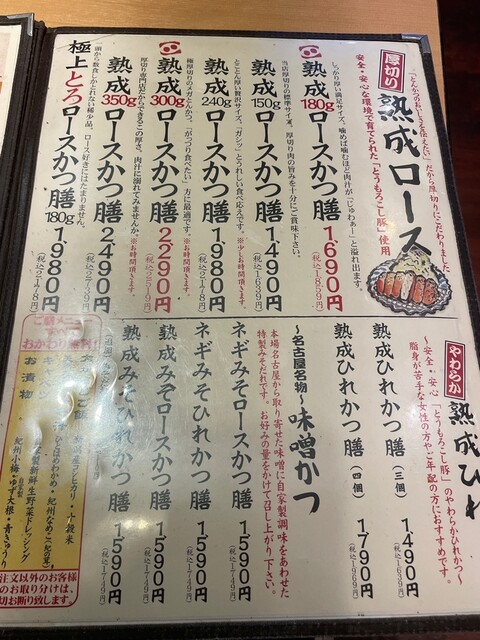 厚切り 熟成ロース
「とんかつのおいしさを伝えたい」だから厚切りにこだわりました
安全・安心な環境で育てられた「とうもろこし豚」使用
熟成180gロースかつ膳 1690円
（税込1859円）
しっかり厚い満足サイズ。噛めば噛むほど肉汁が「じゅわぁー」と溢れ出ます。
熟成150gロースかつ膳 1490円
（税込1639円）
当店厚切りの標準サイズ。厚切り肉の旨みを十分にご賞味下さい。
熟成240gロースかつ膳 1980円
（税込2178円）
とことん厚い贅沢サイズ。「ガシッ」とうれしい食べ応えです。※少しお時間頂きます。
熟成300gロースかつ膳 2290円
（税込2519円）
極厚切りのメガとんかつ。「がっつり食べたい」方に最適です。※お時間頂きます。
熟成350gロースかつ膳 2490円
（税込2739円）
厚切り専門店だからできるこの厚さ。肉汁に溺れてみませんか。※お時間頂きます。
極上とろロースかつ膳 180g 1980円
（税込2178円）
頭から数食しかとれない稀少品。ロース好きにはたまりません。
やわらか 熟成ひれ
〜安全・安心「とうもろこし豚」のやわらかひれかつ〜
脂身が苦手な女性の方やご年配の方におすすめです。
熟成ひれかつ膳（三個）1490円
（税込1639円）
熟成ひれかつ膳（四個）1790円
（税込1969円）
〜名古屋名物〜味噌かつ
本場名古屋から取り寄せた味噌に自家製調味をあわせた
特製みそだれです。お好みの量をかけて召し上がり下さい。
ネギみそロースかつ膳 1590円
（税込1749円）
ネギみそひれかつ膳 1590円
（税込1749円）
熟成みそロースかつ膳 1590円
（税込1749円）
熟成みそひれかつ膳 1590円
（税込1749円）
おかわり無料
コシヒカリ・十穀米
ひとほめわかめ・紀州なめこ
自家製新鮮生野菜ドレッシング
お漬物
紀州小梅・ゆず大根・青きゅうり
注文以外のお客様
のお取り分けは、
切お断り致します。